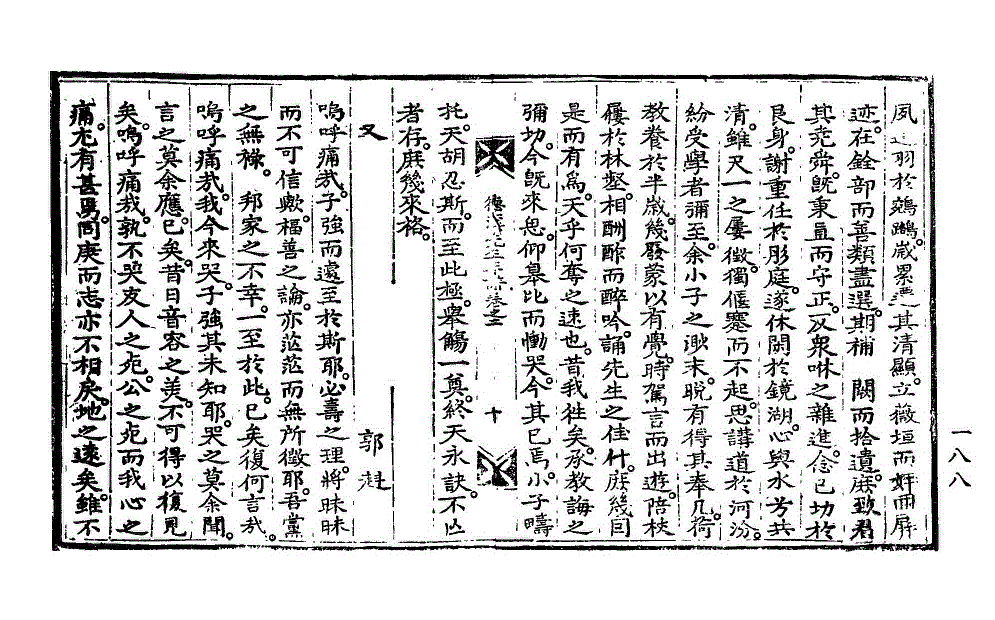 夙□羽於鵷鷴歲累□其清顯立薇垣而奸而屏
迹在銓部而善類盡選期補 闕而拾遺庶致君
其堯舜旣秉直而守正反衆咻之雜進念已切於
艮身謝重任於彤庭遂休閑於鏡湖心與水芳共
清雖尺一之屢徵獨偃蹇而不起思講道於河汾
紛受學者彌至余小子之眇末晩有得其奉几荷
敎養於半歲幾發蒙以有覺時駕言而出遊陪杖
屨於林壑相酬酢而醉吟誦先生之佳什庶幾自
是而有爲天乎何奪之速也昔我徃矣承敎誨之
彌切今旣來思仰皐比而慟哭今其已焉小子疇
十
托天胡忍斯而至此極擧觴一奠終天永訣不亡
者存庶幾來格
又 郭𧺆
嗚呼痛哉子強而遽至於斯耶必壽之理將昧昧
而不可信歟福善之論亦茫茫而無所徵耶吾黨
之無祿 邦家之不幸一至於此已矣復何言哉
嗚呼痛哉我今來哭子強其未知耶哭之莫余聞
言之莫余應已矣昔日音容之美不可得以復見
矣嗚呼痛哉孰不哭友人之死公之死而我心之
痛尤有甚焉同庚而志亦不相戾地之遠矣雖不
一八八